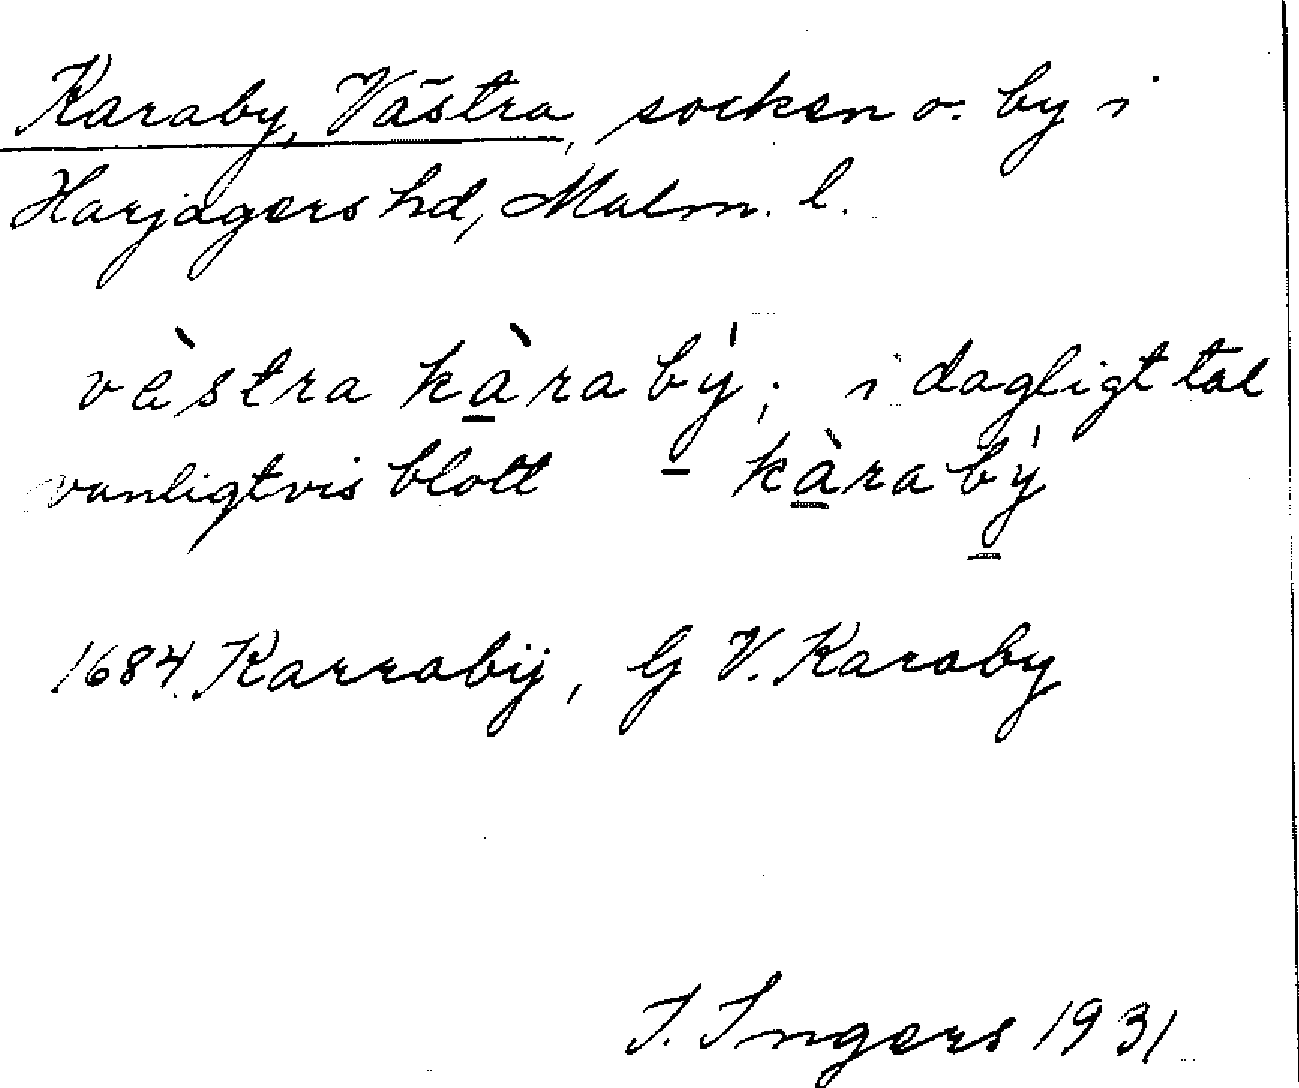 Karaby, Västra, socken o. by i
Harjagers hd, Malm. l.
vàstra kàrabý; i dagligt tal
vanligtvis blott kàrabý
1684 Karrabÿ, G V. Karaby
I. Ingers 1931